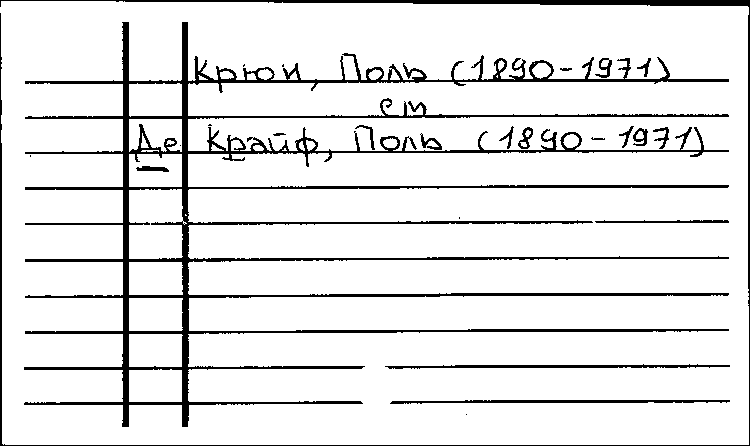 Крюи, Поль (1890-1971)
см
Де Крайф, Поль (1890-1971)